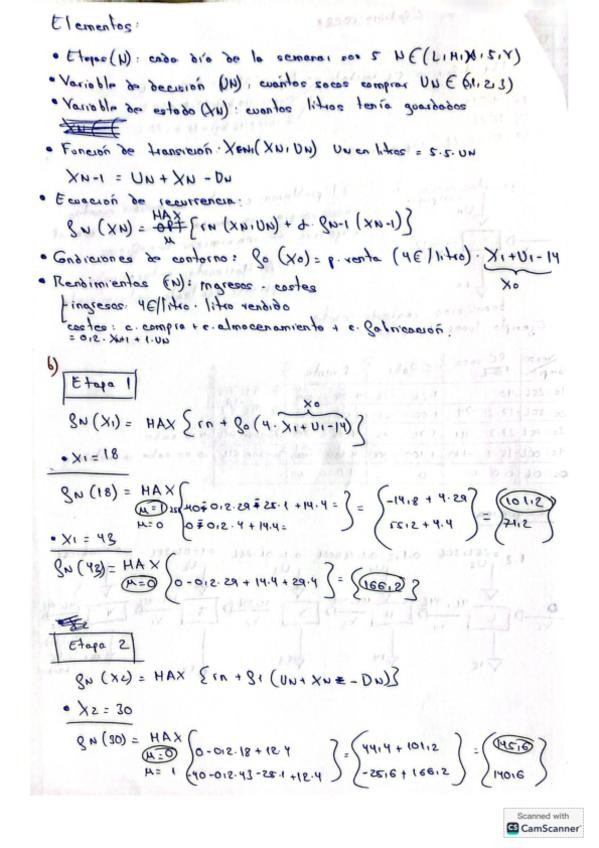 Elementos:
• Etapas (N): cada día de la semana: son 5 N∈(L,M,X,J,V)
• Variable de decisión (UN), cuántos sacos comprar UN∈ (0,1,2,3)
• Variable de estado (XN): cuantos litros tenía guardados
• Función de transición: (XN,UN) UN en litros = 5·5·UN
XN-1 = UN + XN - DN
• Ecuación de recurrencia:
fN (XN) = MAX {rN (XN,UN) + α· fN-1 (XN-1)}
μ
• Condiciones de contorno: f0 (X0) = p. venta (4€/litro) · X1+U1-14
X0
• Rendimientos (N): ingresos - costes
ingresos: 4€/litro · litro vendido
costes: c. compra + c. almacenamiento + c. fabricación.
= 0,2· XN-1 + 1·UN
b)
Etapa 1
X0
fN (X1) = MAX {rn + f0 (4· X1+U1-14)}
• X1 = 18
fN (18) = MAX
μ=1 -40-0,2·29-25·1+14·4 = -14,8 + 4·29 101,2
μ=0 0-0,2·4+14·4 = 55,2 + 4·4 71,2
• X1 = 43
fN (43) = MAX
μ=0 {0-0,2·29+14·4+29·4} = {166,2}
Etapa 2
fN (X2) = MAX {rn + f1 (UN + XN - DN)}
• X2 = 30
fN (30) = MAX
μ=0 0-0,2·18+12·4 = 44,4 + 101,2 = 145,6
μ=1 -40-0,2·43-25·1+12·4 -25,6 + 166,2 140,6
Scanned with
CS CamScanner